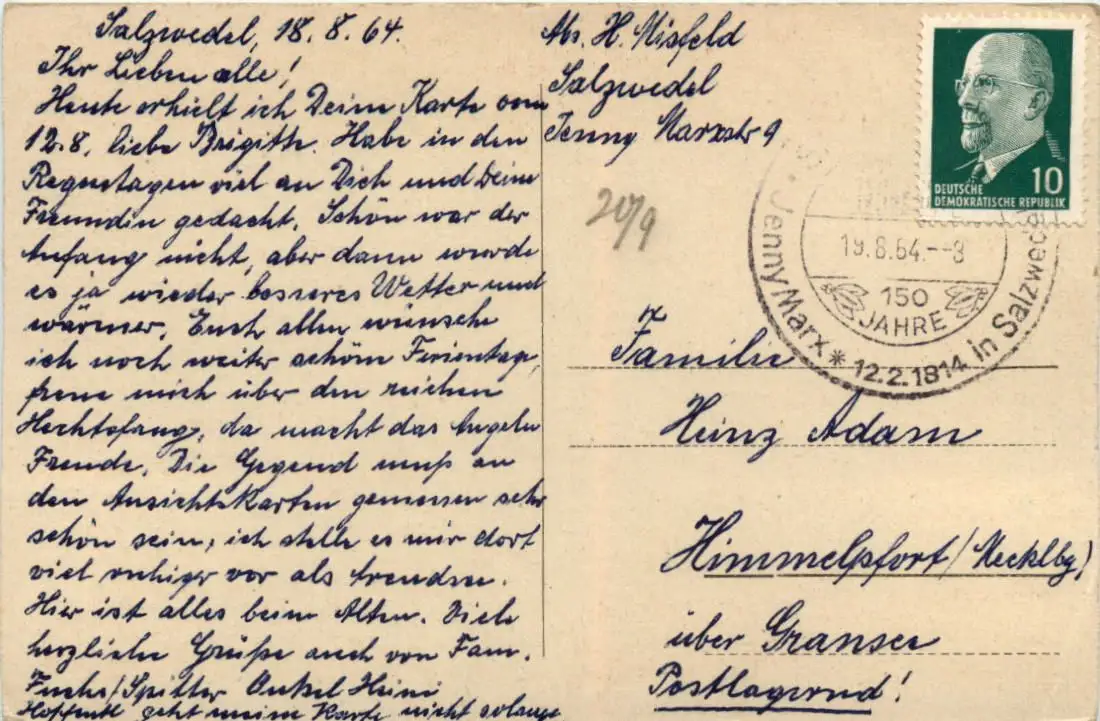 Salzwedel, 18.8.64.
Ihr Lieben alle!
Heute erhielt ich Deine Karte vom
12.8. liebe Brigitte. Habe in den
Regentagen viel an Dich und Deine
Freundin gedacht. Schön war der
Anfang nicht, aber dann wurde
es ja wieder besseres Wetter und
wärmer. Euch allen wünsche
ich noch weiter schöne Ferientage,
freue mich über den reichen
Hechtsfang, da macht das Angeln
Freude. Die Gegend muß an
den Ansichtskarten gemessen sehr
schön sein, ich stelle es mir dort
viel ruhiger vor als Arendsee.
Hier ist alles beim Alten. Viele
herzliche Grüße auch von Fam.
Fuchs/Spitter Onkel Heini
Hoffentl. geht meine Karte nicht solange
Abs. H. Misfeld
Salzwedel
Jenny Marxstr 9
20/9
DEUTSCHE
DEMOKRATISCHE REPUBLIK
10
19.8.64.--8
150
JAHRE
Jenny Marx * 12.2.1814 in Salzwedel
Familie
Heinz Adam
Himmelpfort/Mecklbg)
über Gransee
Postlagernd!